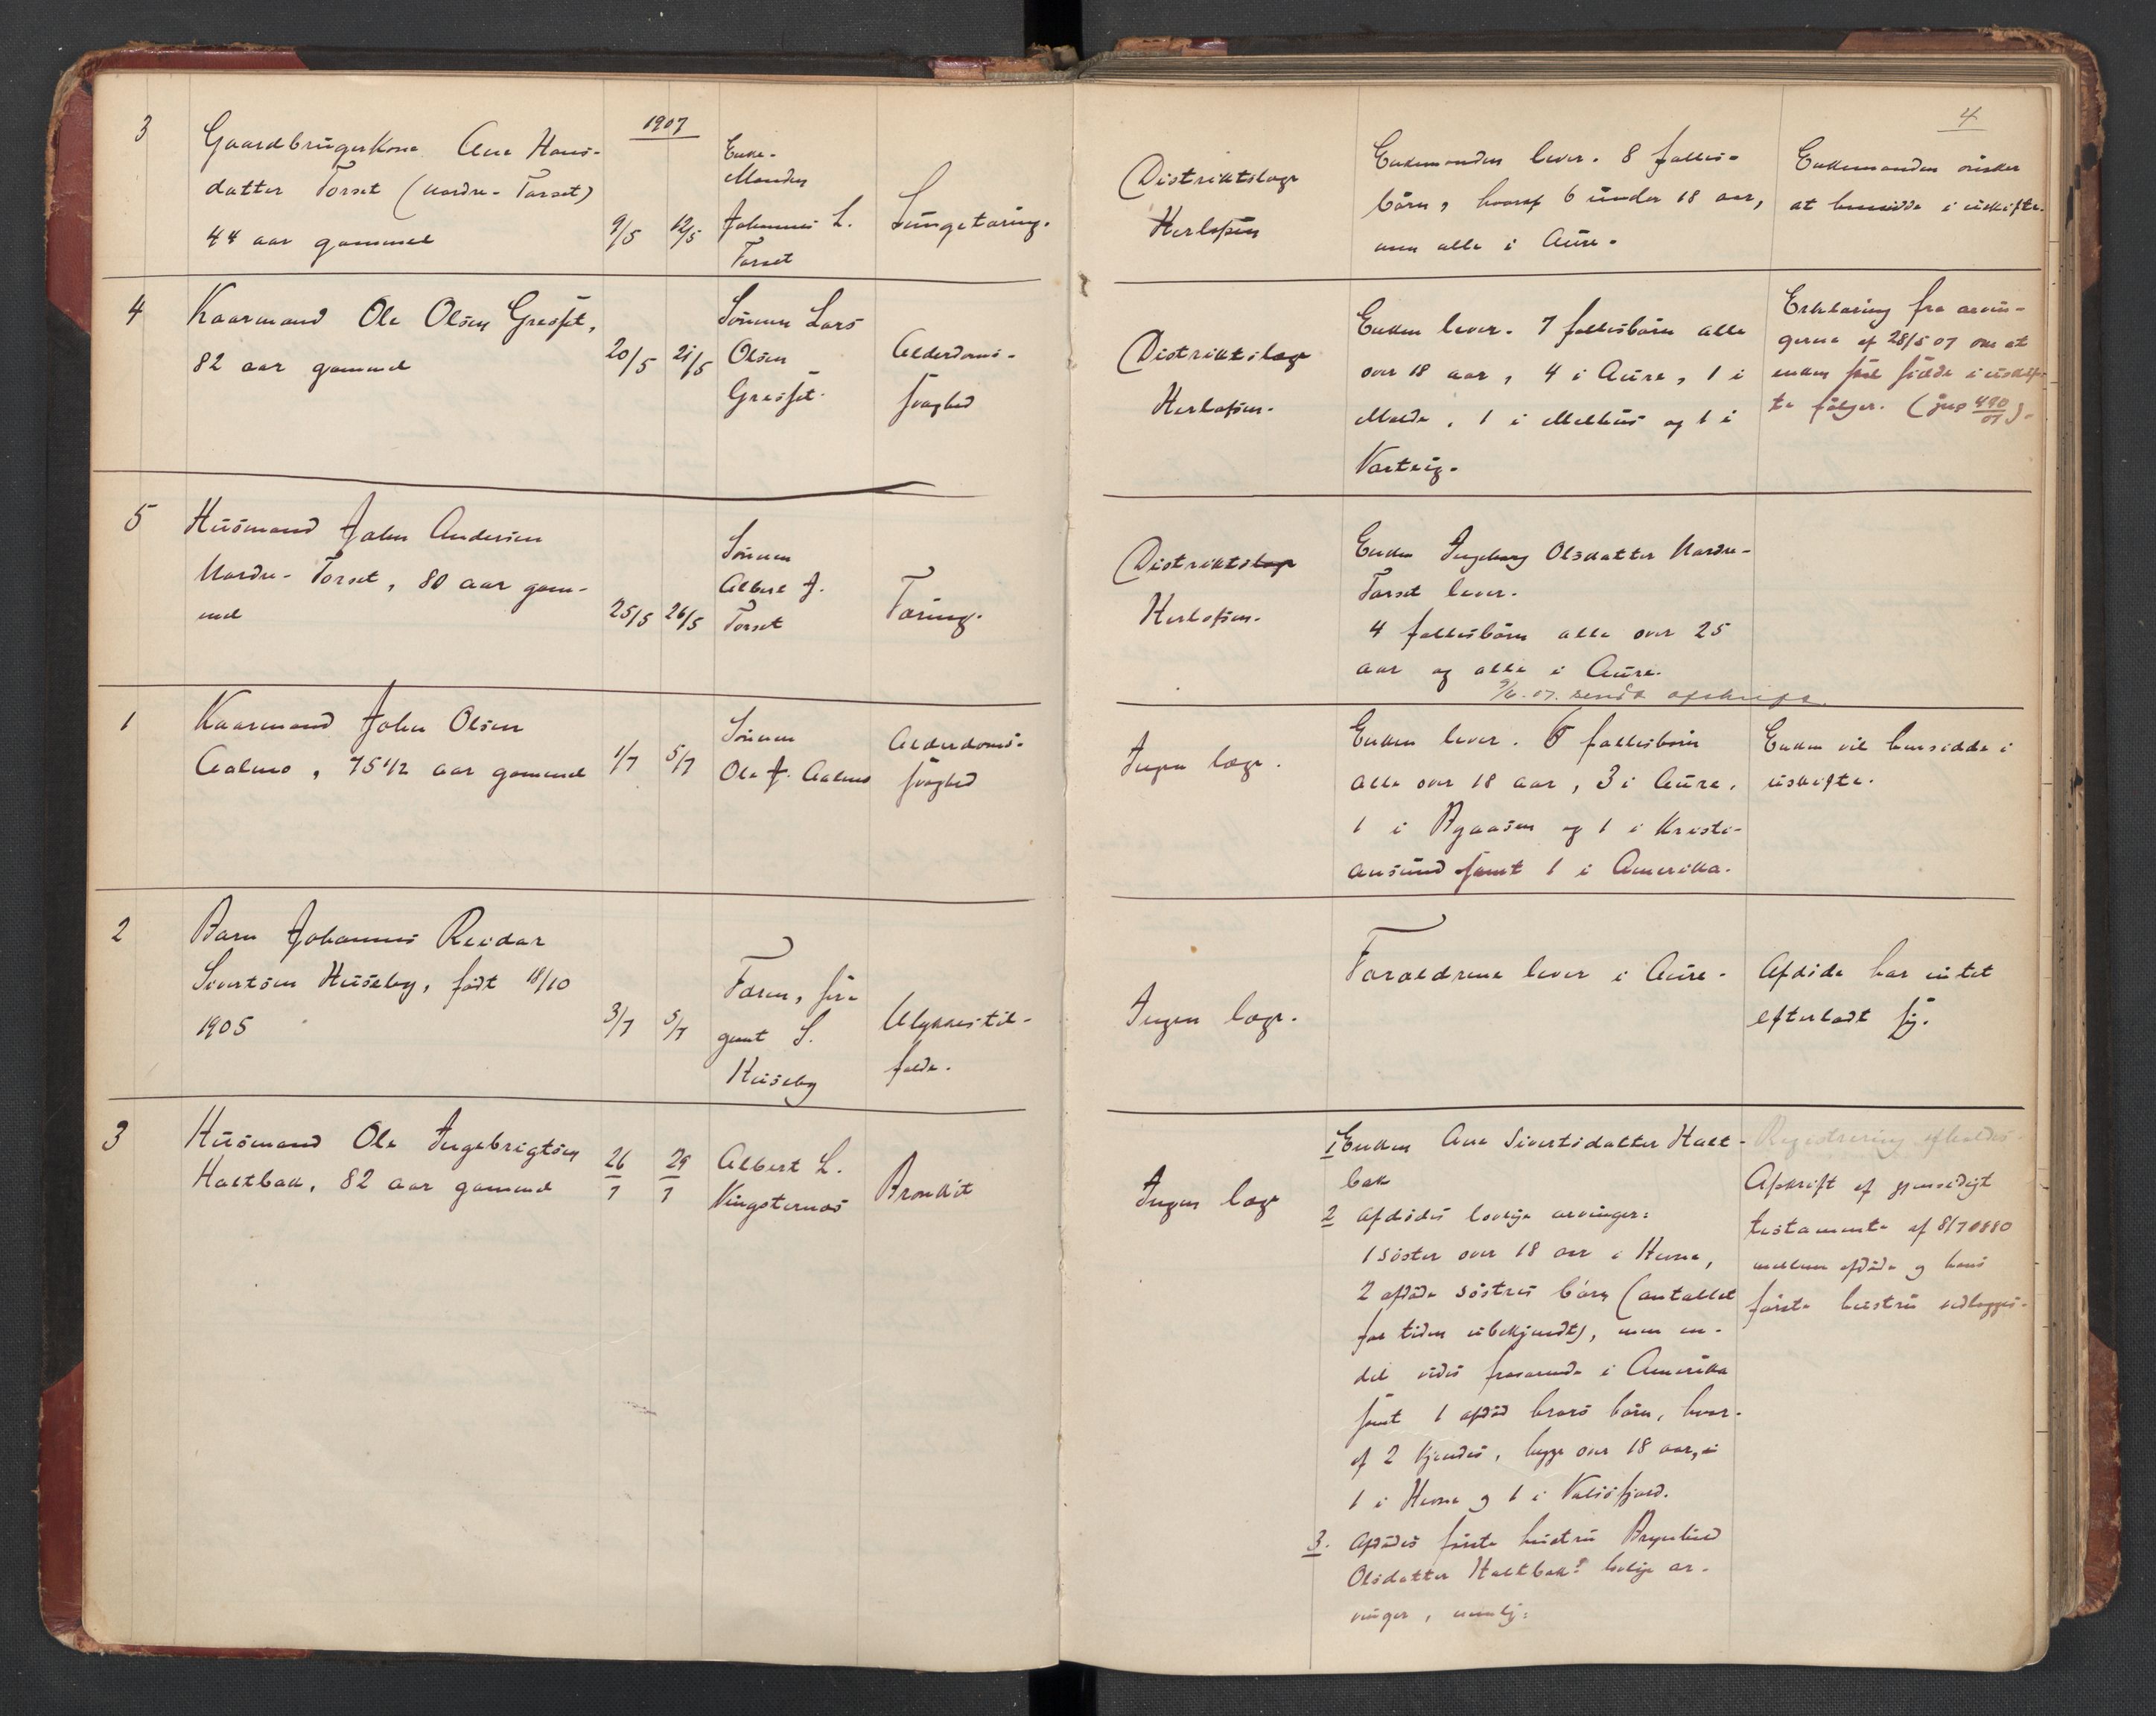 4
1907
3
Gaardbrugerkone Ane Hans-
datter Torset (Nordre-Torset)
44 aar gammel
9/5
12/5
Enke-
Manden
Johannes L.
Torset
Lungetæring.
Distriktslæge
Herlofsen
Enkemanden lever. 8 fælles-
børn, hvoraf 6 under 18 aar,
men alle i Aure.
Enkemanden ønsker
at hensidde i uskifte.
4
Kaarmand Ole Olsen Gresset,
82 aar gammel
20/5
21/5
Sønnen Lars
Olsen
Gresset.
Alderdoms-
svaghed
Distriktslæge
Herlofsen.
Enken lever. 7 fællesbørn alle
over 18 aar, 4 i Aure, 1 i
Molde, 1 i Melhus og 1 i
Varteig.
Erklæring fra arvin-
gerne af 28/5 07 om at
enken skal sidde i uskif-
te følger. (jvs 490/07).
5
Husmand John Andersen
Nordre-Torset, 80 aar gam-
mel
25/5
26/5
Sønnen
Albert J.
Torset
Tæring.
Distriktslæge
Herlofsen.
Enken Ingeborg Olsdatter Nordre-
Torset lever.
4 fællesbørn alle over 25
aar og alle i Aure.
9/6.07. sendt afskrift.
1
Kaarmand John Olsen
Aalmo, 75 1/2 aar gammel
1/7
5/7
Sønnen
Ole J. Aalmo
Alderdoms-
svaghed
Ingen læge.
Enken lever. 6 fællesbørn
alle over 18 aar, 3 i Aure,
1 i Bynæsen og 1 i Kristi-
ansund samt 1 i Amerika.
Enken vil hensidde i
uskifte.
2
Barn Johannes Reidar
Sivertsen Huseby, født 18/10
1905
3/7
5/7
Faren, ser-
geant S.
Huseby
Ulykkestil-
fælde.
Ingen læge.
Forældrene lever i Aure.
Afdøde har intet
efterladt sig.
3
Husmand Ole Ingebrigtsen
Haltbak, 82 aar gammel
26/7
29/7
Albert L.
Vingsternes
Bronkit
Ingen læge
1 Enken Ane Sivertsdatter Halt-
bak
2 Afdødes lovlige arvinger:
1 søster over 18 aar i Hevne,
2 afdøde søstres børn (antallet
for tiden ubekjendt), men en-
del vides fraværende i Amerika
samt 1 afdød brors børn, hvor-
af 2 kjendes, begge over 18 aar,
1 i Hevne og 1 i Valsøfjord.
3. Afdødes første hustru Brynhild
Olsdatter Haltbak's lovlige ar-
vinger, nemlig:
Registrering afholdes.
Afskrift af gjensidigt
testamente af 8/7 1880
mellem afdøde og hans
første hustru vedlægges.